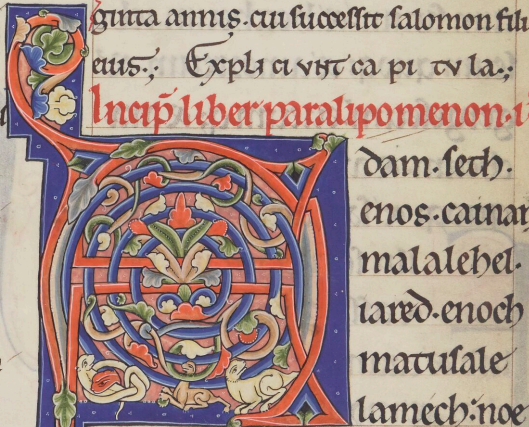 ginta annis. cui successit salomon fili
eius;. Expli ci unt ca pi tu la.;
Incip̄ liber paralipomenon. i
A dam. seth.
enos. cainan
malalehel.
iared. enoch
matusale
lamech: noe